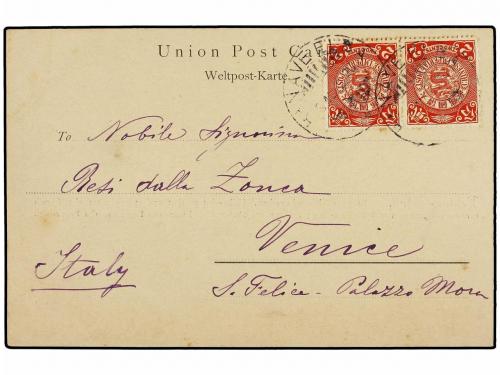 Union Post Ca
Weltpost-Karte.
To Nobile Signorina
Besi dalla Zonca
Venice
Italy
S. Felice - Palazzo Mora